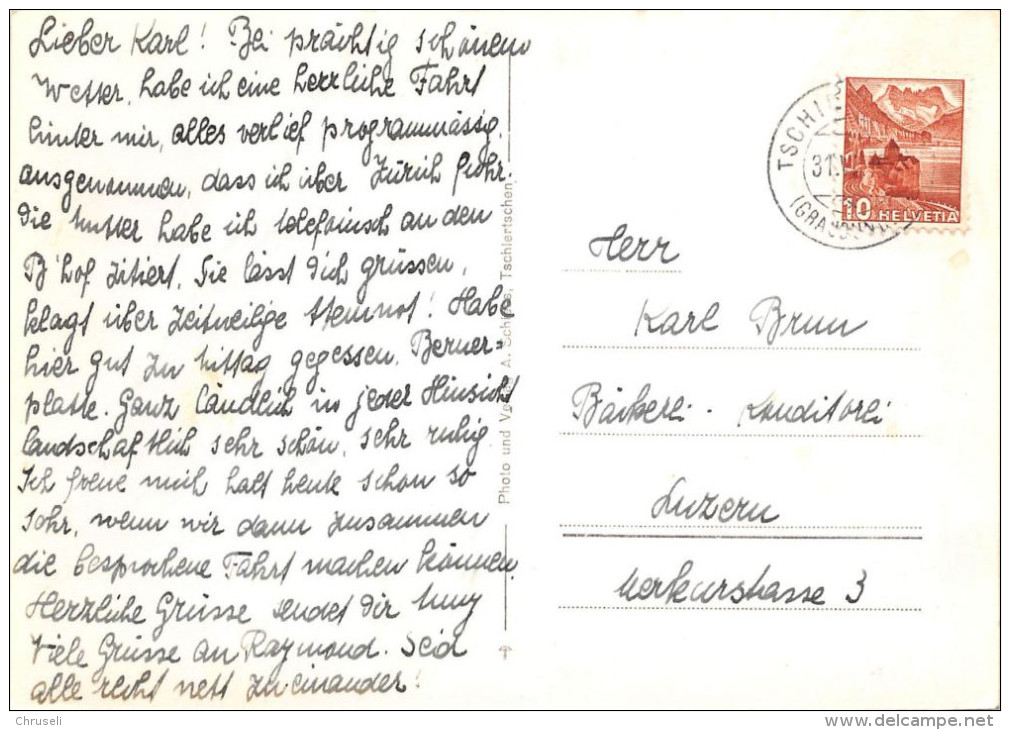 Lieber Karl! Bei prächtig schönem
Wetter, habe ich eine herrliche Fahrt
hinter mir, alles verlief programmässig,
ausgenommen, dass ich über Zürich fuhr.
Die Mutter habe ich telefonisch an den
B'hof zitiert, Sie lässt Dich grüssen,
klagt über zeitweilige Atemnot! Habe
hier gut zu Mittag gegessen, Berner=
platte. Ganz ländlich in jeder Hinsicht
landschaftlich sehr schön, sehr ruhig.
Ich freue mich halt heute schon so
sehr, wenn wir dann zusammen
die besprochene Fahrt machen können.
Herzliche Grüsse sendet Dir
Viele Grüsse an Raymond. Seid
alle recht nett zueinander!
Photo und Verlag A. Tschiertschen
TSCHI
31.
(GRAUB
10 HELVETIA
Herr
Karl Brun
Bäckerei - Konditorei
Luzern
Merkurstrasse 3
Chruseli
www.delcampe.net